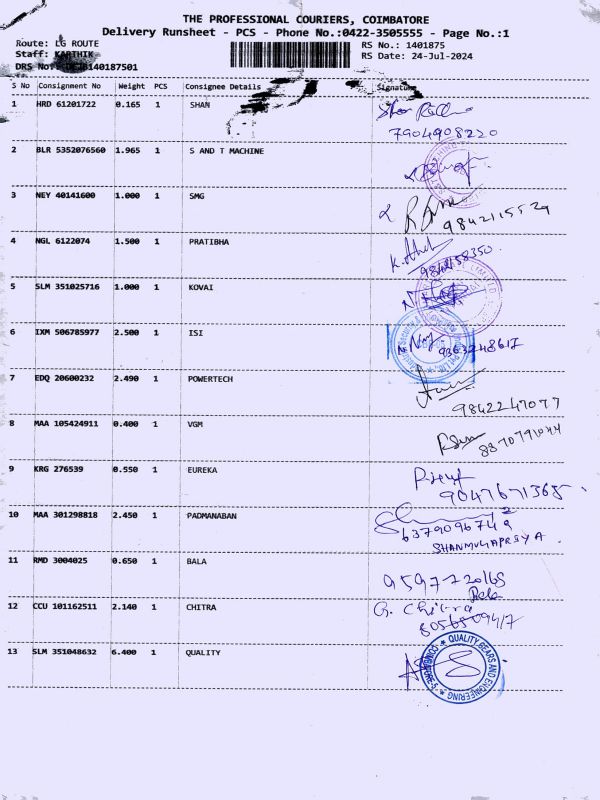 THE PROFESSIONAL COURIERS, COIMBATORE
Delivery Runsheet - PCS - Phone No.:0422-3505555 - Page No.:1
Route: LG ROUTE
RS No.: 1401875
Staff: KARTHIK
RS Date: 24-Jul-2024
DRS No.:
S No Consignment No Weight PCS Consignee Details Signature
1 HRD 61201722 0.165 1 SHAN
7904908220
2 BLR 5352076560 1.965 1 S AND T MACHINE
3 NEY 40141600 1.000 1 SMG
9842115529
4 NGL 6122074 1.500 1 PRATIBHA
9842158350
5 SLM 351025716 1.000 1 KOVAI
6 IXM 506785977 2.500 1 ISI
9363248617
7 EDQ 20600232 2.490 1 POWERTECH
9842247077
8 MAA 105424911 0.400 1 VGM
9 KRG 276539 0.550 1 EUREKA
9047671365
10 MAA 301298818 2.450 1 PADMANABAN
SHANMUGAPRIYA
11 RMD 3004025 0.650 1 BALA
9597720165
Bala
12 CCU 101162511 2.140 1 CHITRA G. Chitra
13 SLM 351048632 6.400 1 QUALITY
QUALITY GEARS AND ENGINEERING